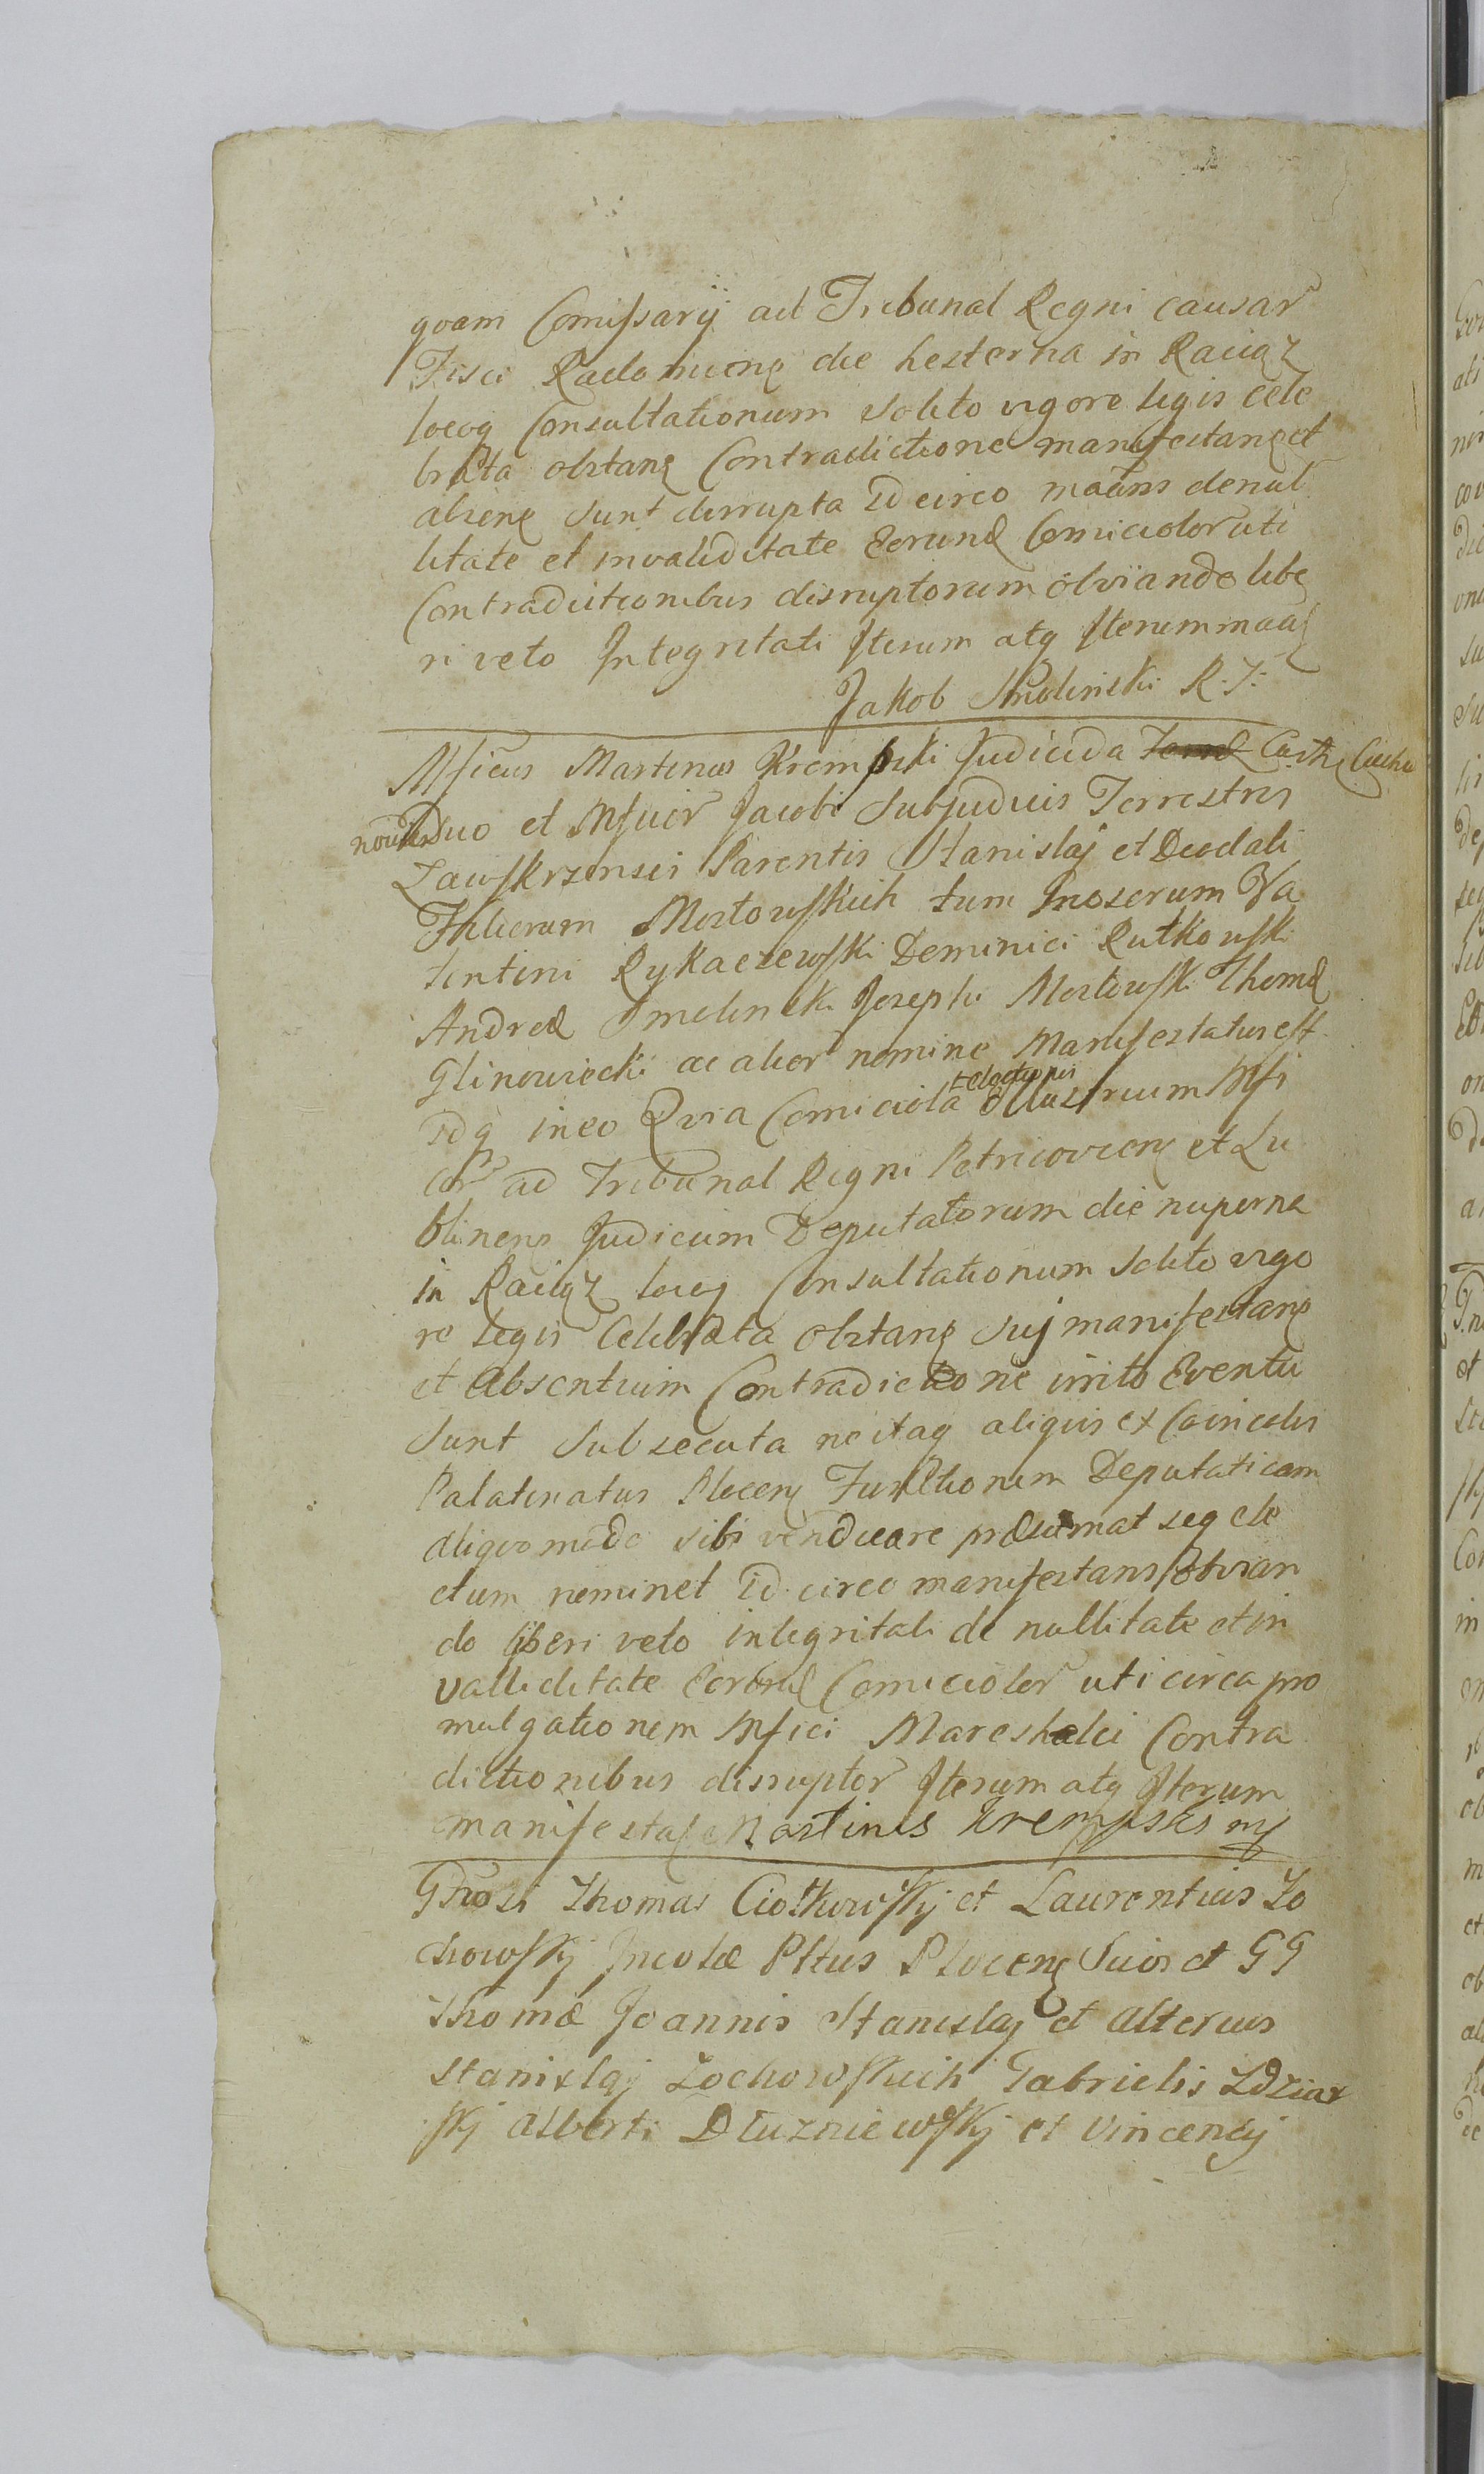 quam Comissarij ad Tribunal Regni causar
Fisci Radomiens die hesterna in Raciąz
locoq Consultationum solito vigore legis cele
brata obstans Contradictione manifestans et
absens sunt disrupta Idcirco maans de nul
litate et invaliditate Eorund Comiciolor uti
Contradictionibus disruptorum obviando libe
ri veto Integritati Iterum atq Iterum maas
Jakob Smolinski R. Z:
Mficus Martinus Krempski Judicida Castr Ciecha
noviens suo et Mficor Jacobi Subjudicis Terrestris
Zawskrzensis Parentis Stanislaj et Deodati
Filiorum Mostowskich tum Gnoserum Va
lentini Rykaczewski Dominici Rutkowski
Andreæ Smolinski Josephi Mostowski Thomæ
Glinowiecki ac alior nomine Manifestatus est
Idq in eo Qvia Comiciola Electionis Illustrium Mfi
cor ad Tribunal Regni Petricoviens et Lu
blinens Judicium Deputatorum die nuperna
in Raciąz locoq Consultationum solito vigo
re legis Celebrata obstans suj manifestans
et absentium Contradictione irrito Eventu
sunt subsecuta ne itaq aliquis ex Coincolis
Palatinatus Plocens Functionem Deputaticam
aliquo modo sibi vendicare præsumat seq ele
ctum nominet Idcirco manifestans Obvian
do liberi veto integritati de nullitate et in
validitate Eorund Comiciolor uti circa pro
mulgationem Mfici Mareshalci Contra
dictionibus disruptor Iterum atq Iterum
manifestas Martinus Krempski mp
Gnosi Thomas Ciotkowskj et Laurentius Zo
chowskj Incolæ Pltus Plocens Suis et GG
Thomæ Joannis Stanislaj et alterius
Stanislaj Zochowskich Gabrielis Zdziar
skj Alberti Dłuzniewskj et Vincentij